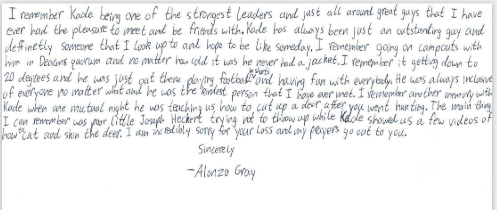 I remember Kade being one of the strongest leaders and just all around great guys that I have
ever had the pleasure to meet and be friends with. Kade has always been just an outstanding guy and
definetly someone that I look up to and hope to be like someday. I remember going on campouts with
him in Deacons quorum and no matter how cold it was he never had a jacket. I remember it getting down to
20 degrees and he was just out there playing football in shorts and having fun with everybody. He was always inclusive
of everyone no matter what and he was the kindest person that I have ever met. I remember another memory with
Kade when one mutual night he was teaching us how to cut up a deer after you went hunting. The main thing
I can remember was poor little Joseph Heckert trying not to throw up while Kade showed us a few videos of
how to cut and skin the deer. I am incredibly sorry for your loss and my prayers go out to you.
Sincerely
-Alonzo Gray